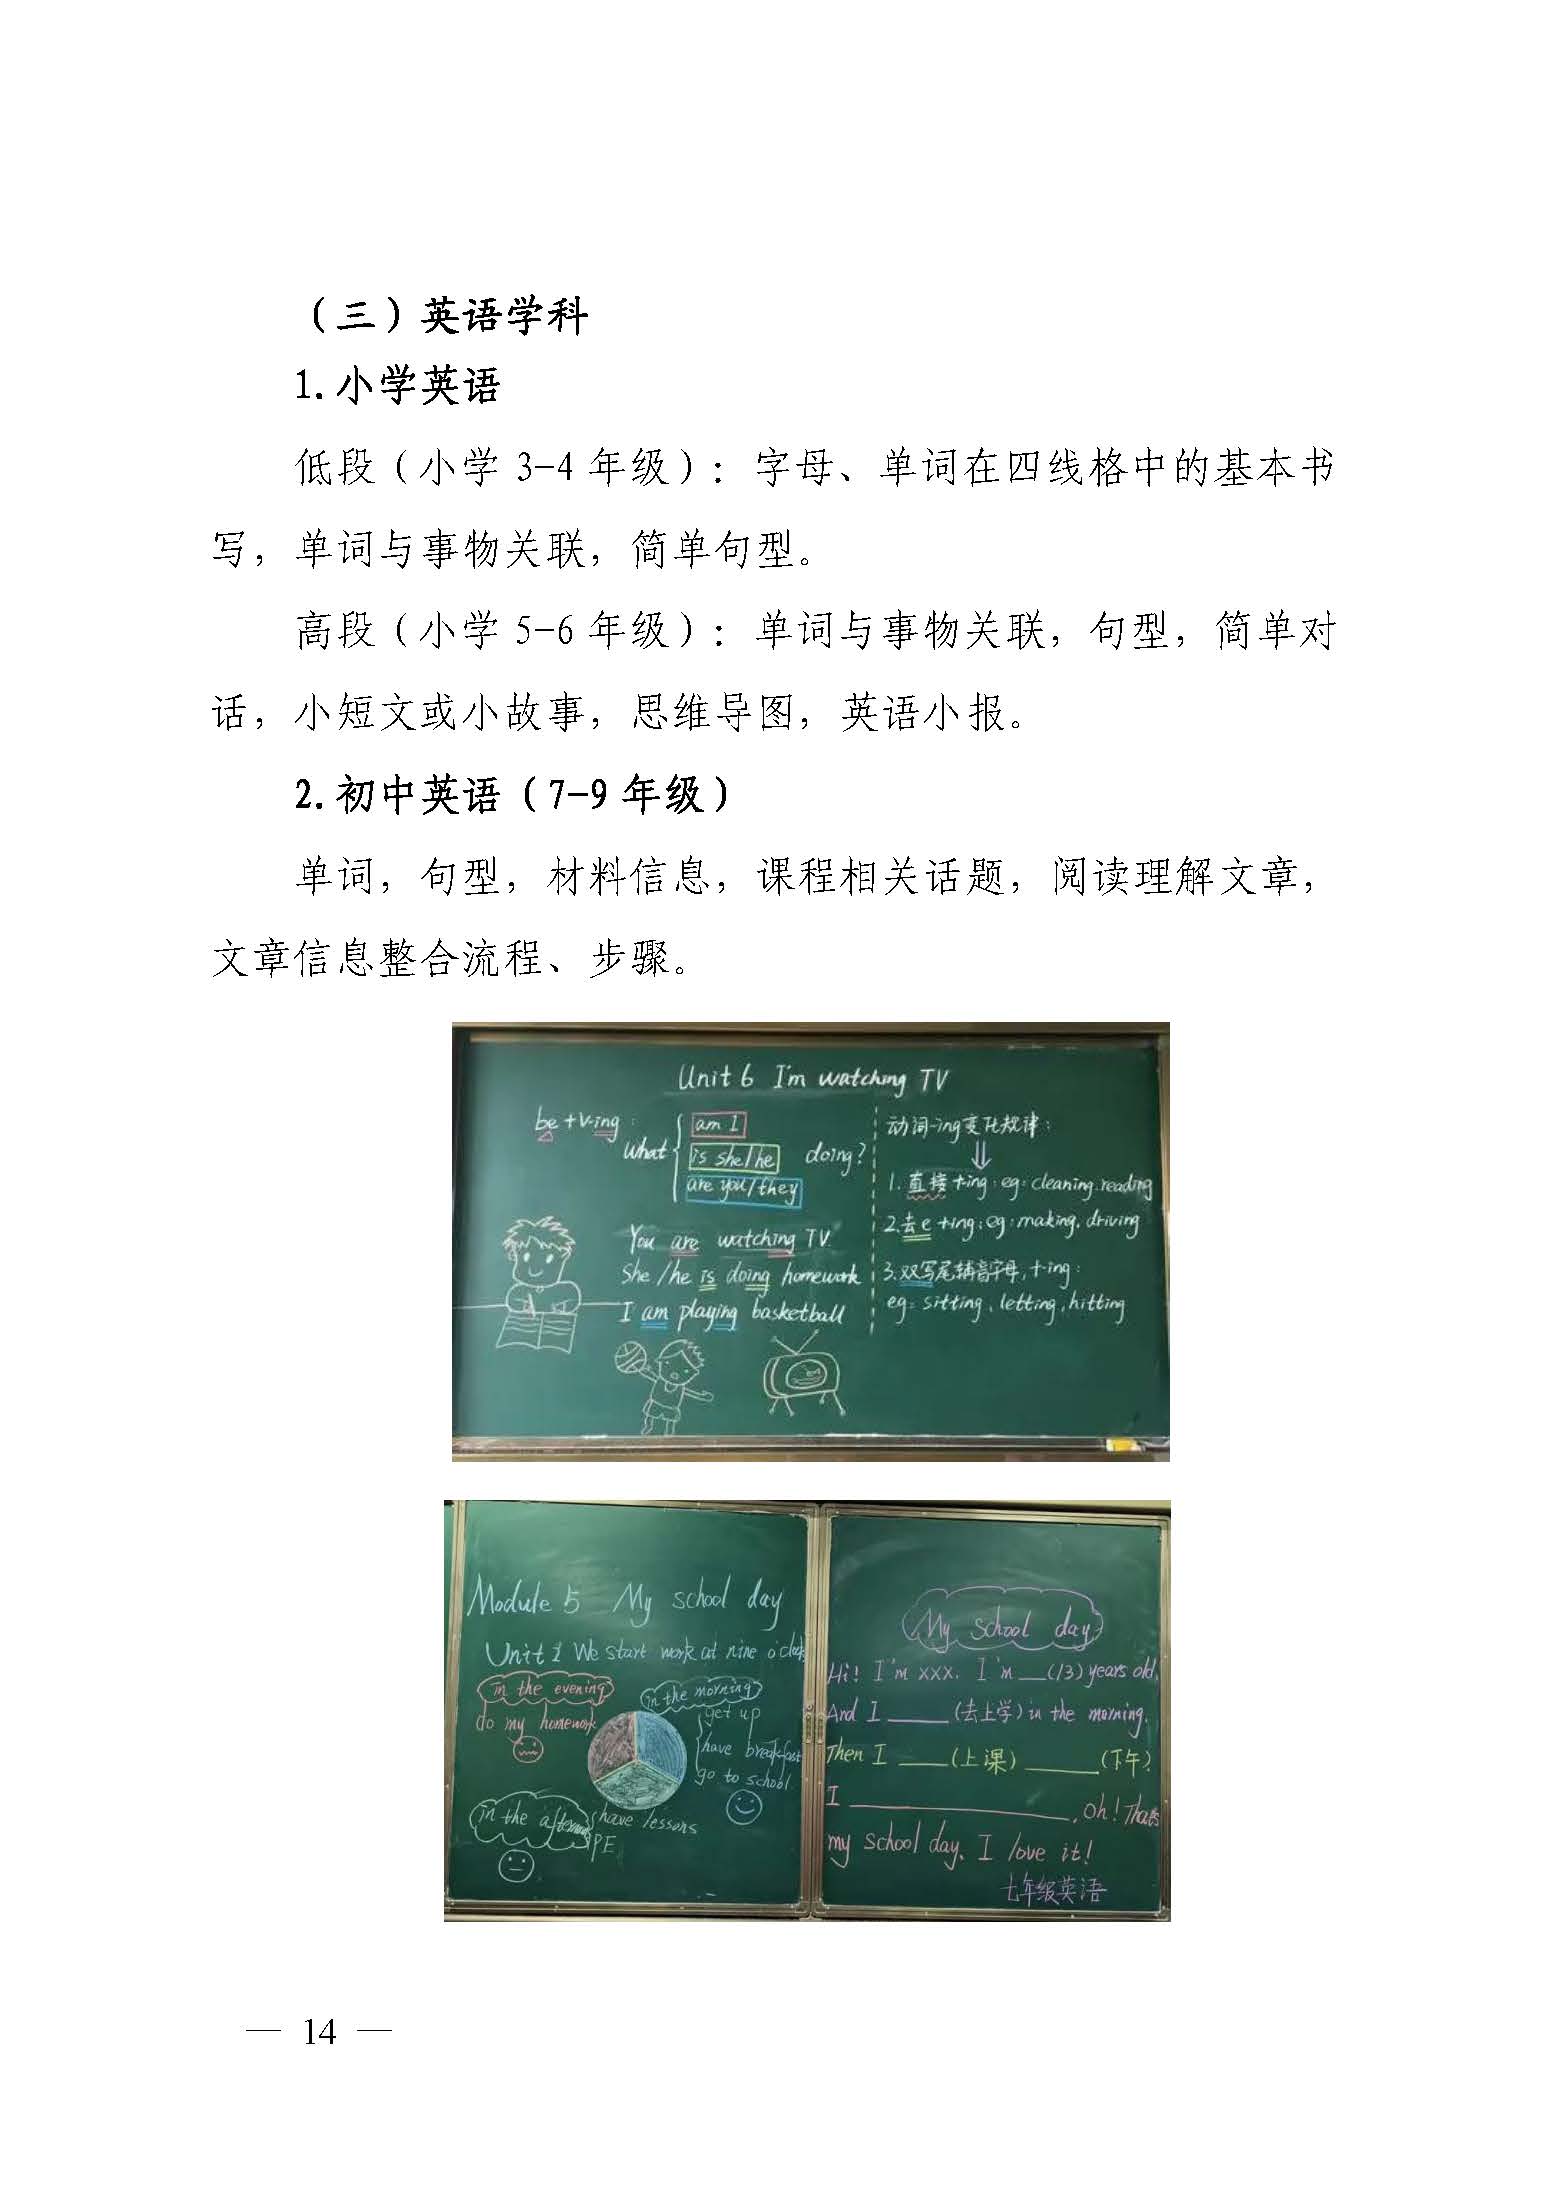 （三）英语学科
1.小学英语
低段（小学 3-4 年级）：字母、单词在四线格中的基本书
写，单词与事物关联，简单句型。
高段（小学 5-6 年级）：单词与事物关联，句型，简单对
话，小短文或小故事，思维导图，英语小报。
2.初中英语（7-9 年级）
单词，句型，材料信息，课程相关话题，阅读理解文章，
文章信息整合流程、步骤。
Unit 6 I'm watching TV
be + v-ing :
What
am I
is she/he
are you/they
doing?
You are watching TV.
She/he is doing homework
I am playing basketball
动词-ing变化规律：
1. 直接 +ing : eg: cleaning. reading
2. 去e +ing : eg: making. driving
3. 双写尾辅音字母, +ing :
eg: sitting, letting, hitting
Module 5 My school day
Unit 1 We start work at nine o'clock
in the evening
do my homework
in the morning
get up
have breakfast
go to school
in the afternoon
have lessons
PE
My school day
Hi! I'm xxx. I'm __(13) years old.
And I ____ (去上学) in the morning.
Then I ____ (上课) ____ (下午).
I ________________, oh! That's
my school day. I love it!
七年级英语
— 14 —